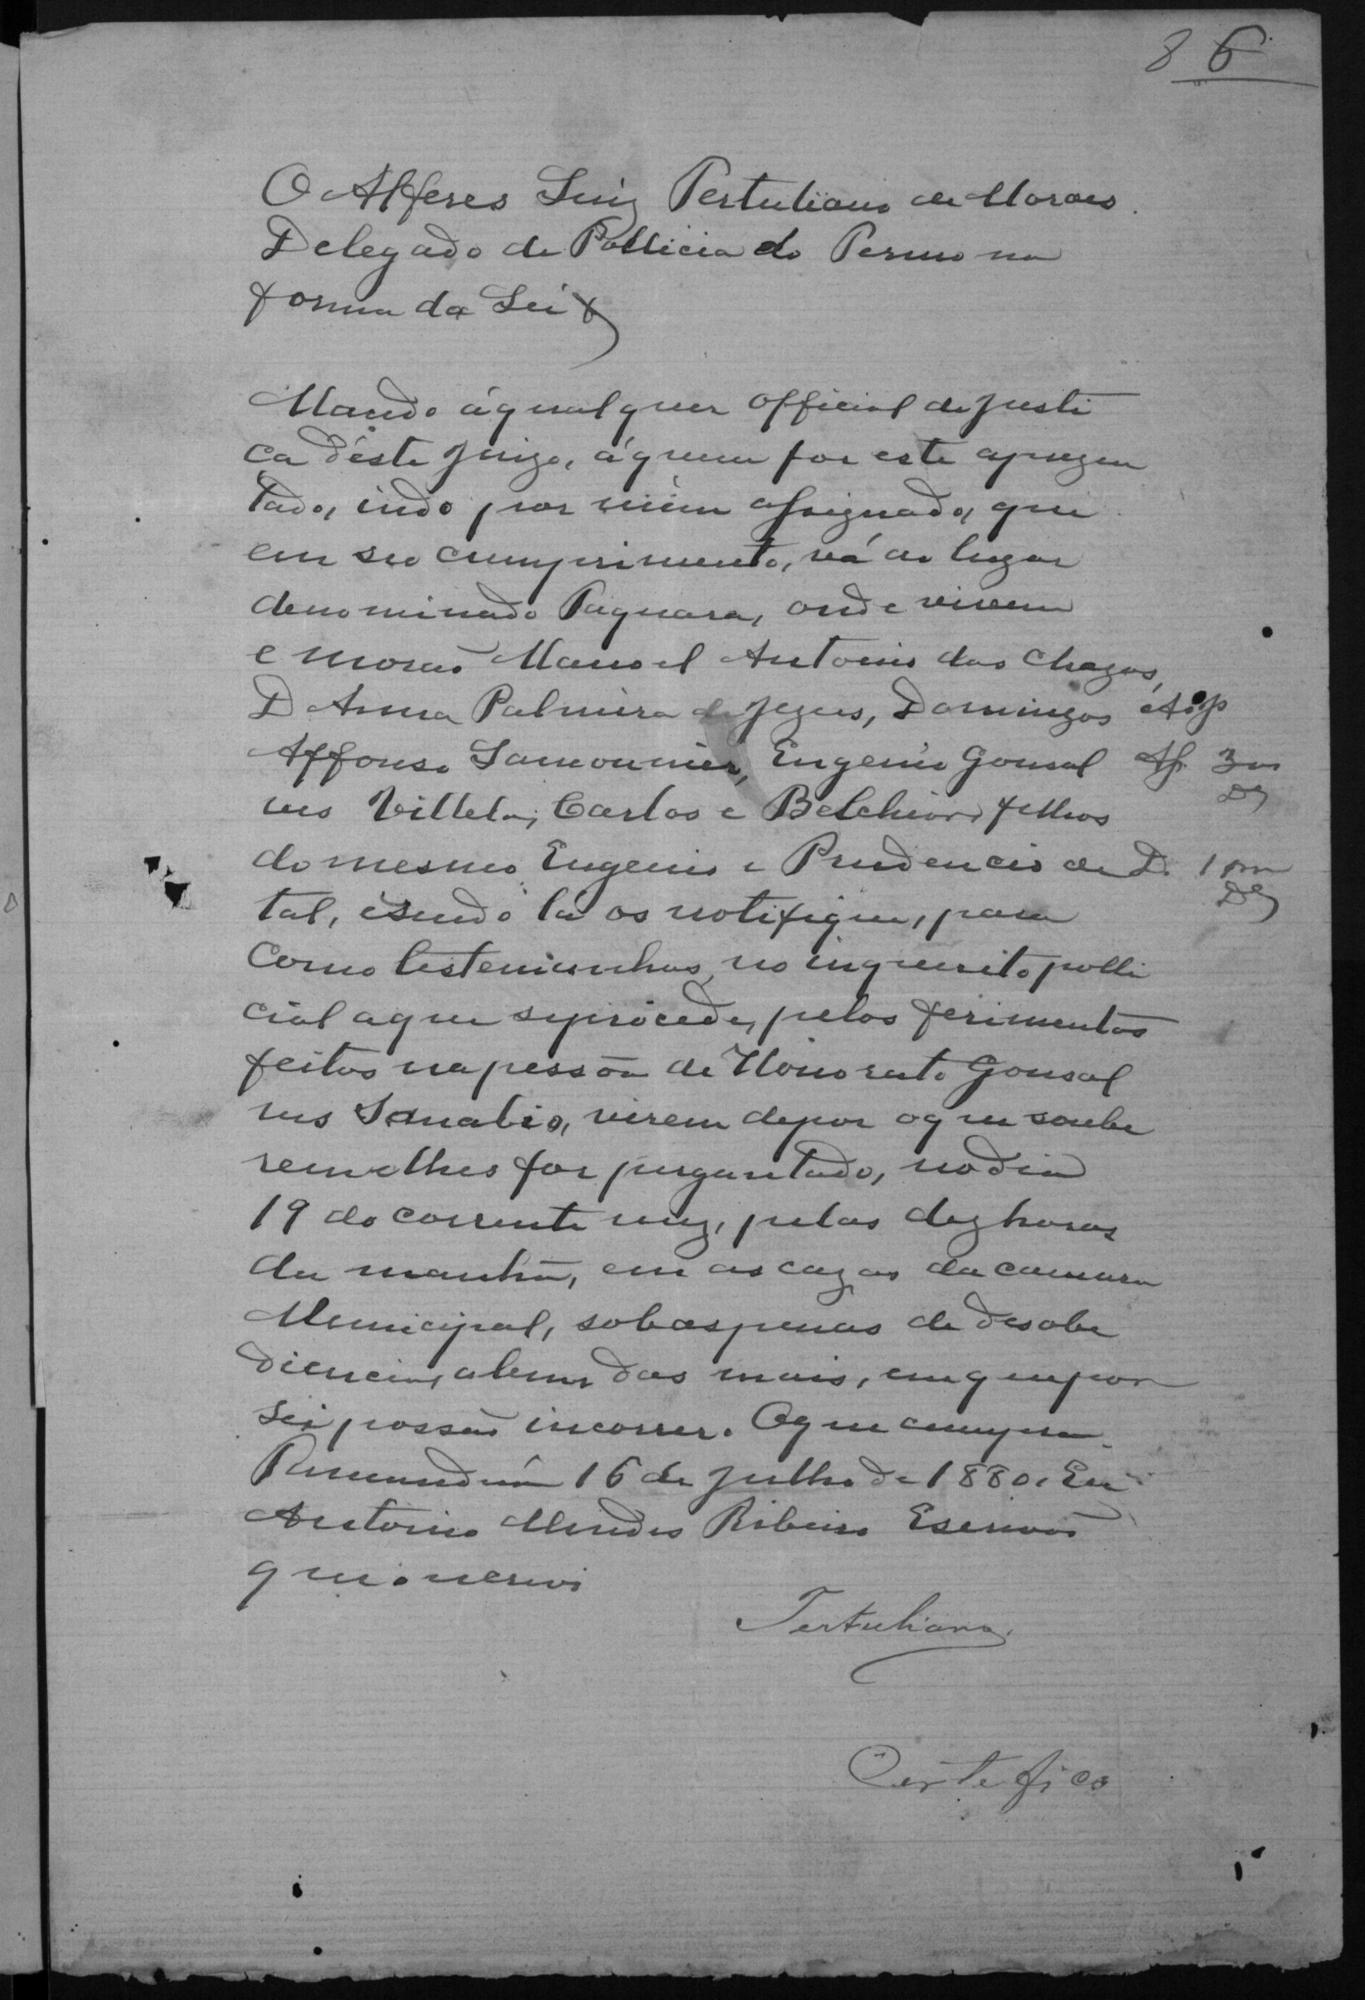 8 6
O Alferes Luiz Pertuliano de Moraes
Delegado de Pollicia do Termo na
forma da Lei &
Mando áqualquer official de justi
ca déste Juizo, áquem for este aprezen
tado, indo por mim assignado, que
em seo cumprimento, vá ao lugar
denominado Taquara, onde vivem
e morão Manoel Antonio das Chagas,
D Anna Palmira de Jezus, Domingos
Affonso Lamounier, Eugenio Gonsal
ves Villela, Carlos e Belchior, filhos
do mesmo Eugenio e Prudencio de D.
tal, esendo lá os notifique, para
como testemunhas, no inquerito polli
cial aque seprocede, pelos ferimentos
feitos napessôa de Honorato Gonsal
ves Sanabio, virem depor oque soube
rem elhes for perguntado, nodia
19 do corrente mez, pelas dez horas
da manhã, em as cazas da camara
Municipal, sobaspenas de desobe
diencia, alem das mais, emquepor
Lei possão incorrer. Oque cumpra.
16 de Julho de 1880. Eu
Antonio Mendes Ribeiro Escrivão
que oescrevi
Tertuliano
Certefico